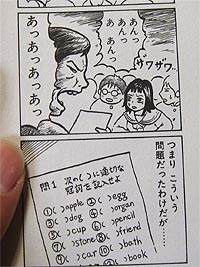 ザワザワ
あんっ
あんっ
あんっ
あっあっあっあっ
つまり こういう
問題だったわけだが……
問1 次の( )に適切な
冠詞を記入せよ
①( )apple ②( )egg
③( )dog ④( )organ
⑤( )cup ⑥( )pencil
⑦( )stone ⑧( )friend
⑨( )car ⑩( )bath
( )book